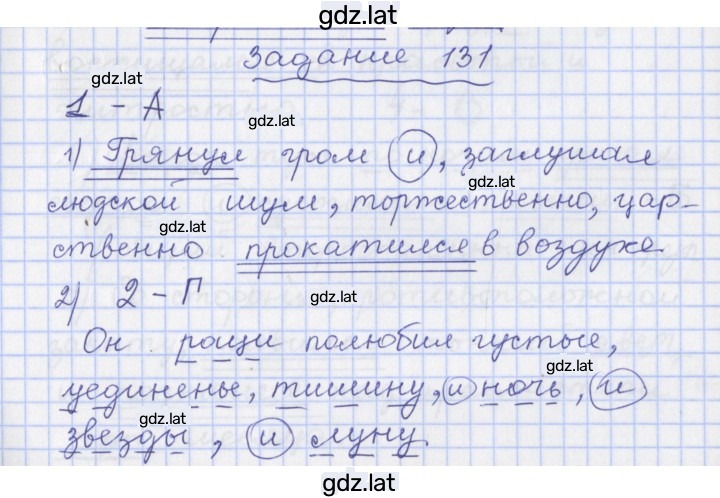 gdz.lat
Задание 131
gdz.lat
1 - А
gdz.lat
1) Грянул гром и, заглушая
людской шум, торжественно, цар-
gdz.lat
ственно прокатился в воздухе
gdz.lat
2) 2 - Г
gdz.lat
Он рощи полюбил густые,
gdz.lat
уединенье, тишину, и ночь, и
gdz.lat
звезды, и луну.
gdz.lat